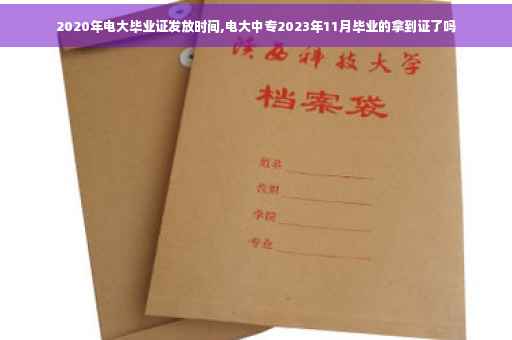 2020年电大毕业证发放时间,电大中专2023年11月毕业的拿到证了吗
陕西科技大学
档案袋
姓名
性别
学院
专业